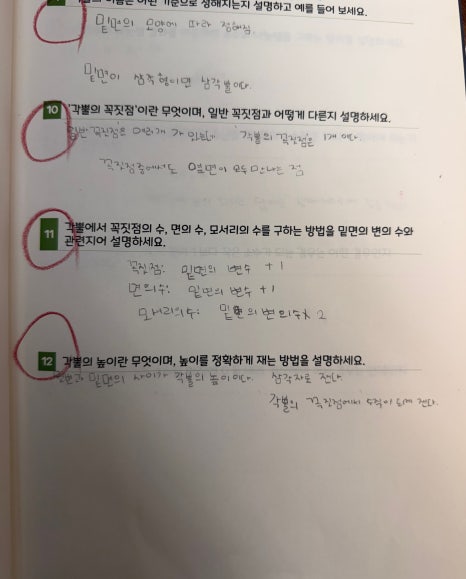 이름은 어떤 기준으로 정해지는지 설명하고 예를 들어 보세요.
밑면의 모양에 따라 정해짐
밑면이 삼각형이면 삼각뿔이다.
10 '각뿔의 꼭짓점'이란 무엇이며, 일반 꼭짓점과 어떻게 다른지 설명하세요.
일반 꼭짓점은 여러개 각뿔의 꼭짓점은 1개 이다.
꼭짓점중에서도 옆면이 모두 만나는 점
11 각뿔에서 꼭짓점의 수, 면의 수, 모서리의 수를 구하는 방법을 밑면의 변의 수와
관련지어 설명하세요.
꼭짓점: 밑면의 변수 +1
면의수: 밑면의 변수 +1
모서리의수: 밑면의 변의수×2
12 각뿔의 높이란 무엇이며, 높이를 정확하게 재는 방법을 설명하세요.
밑면의 사이가 각뿔의 높이이다. 삼각자로 잰다.
각뿔의 꼭짓점에서 수직이 되게 잰다.